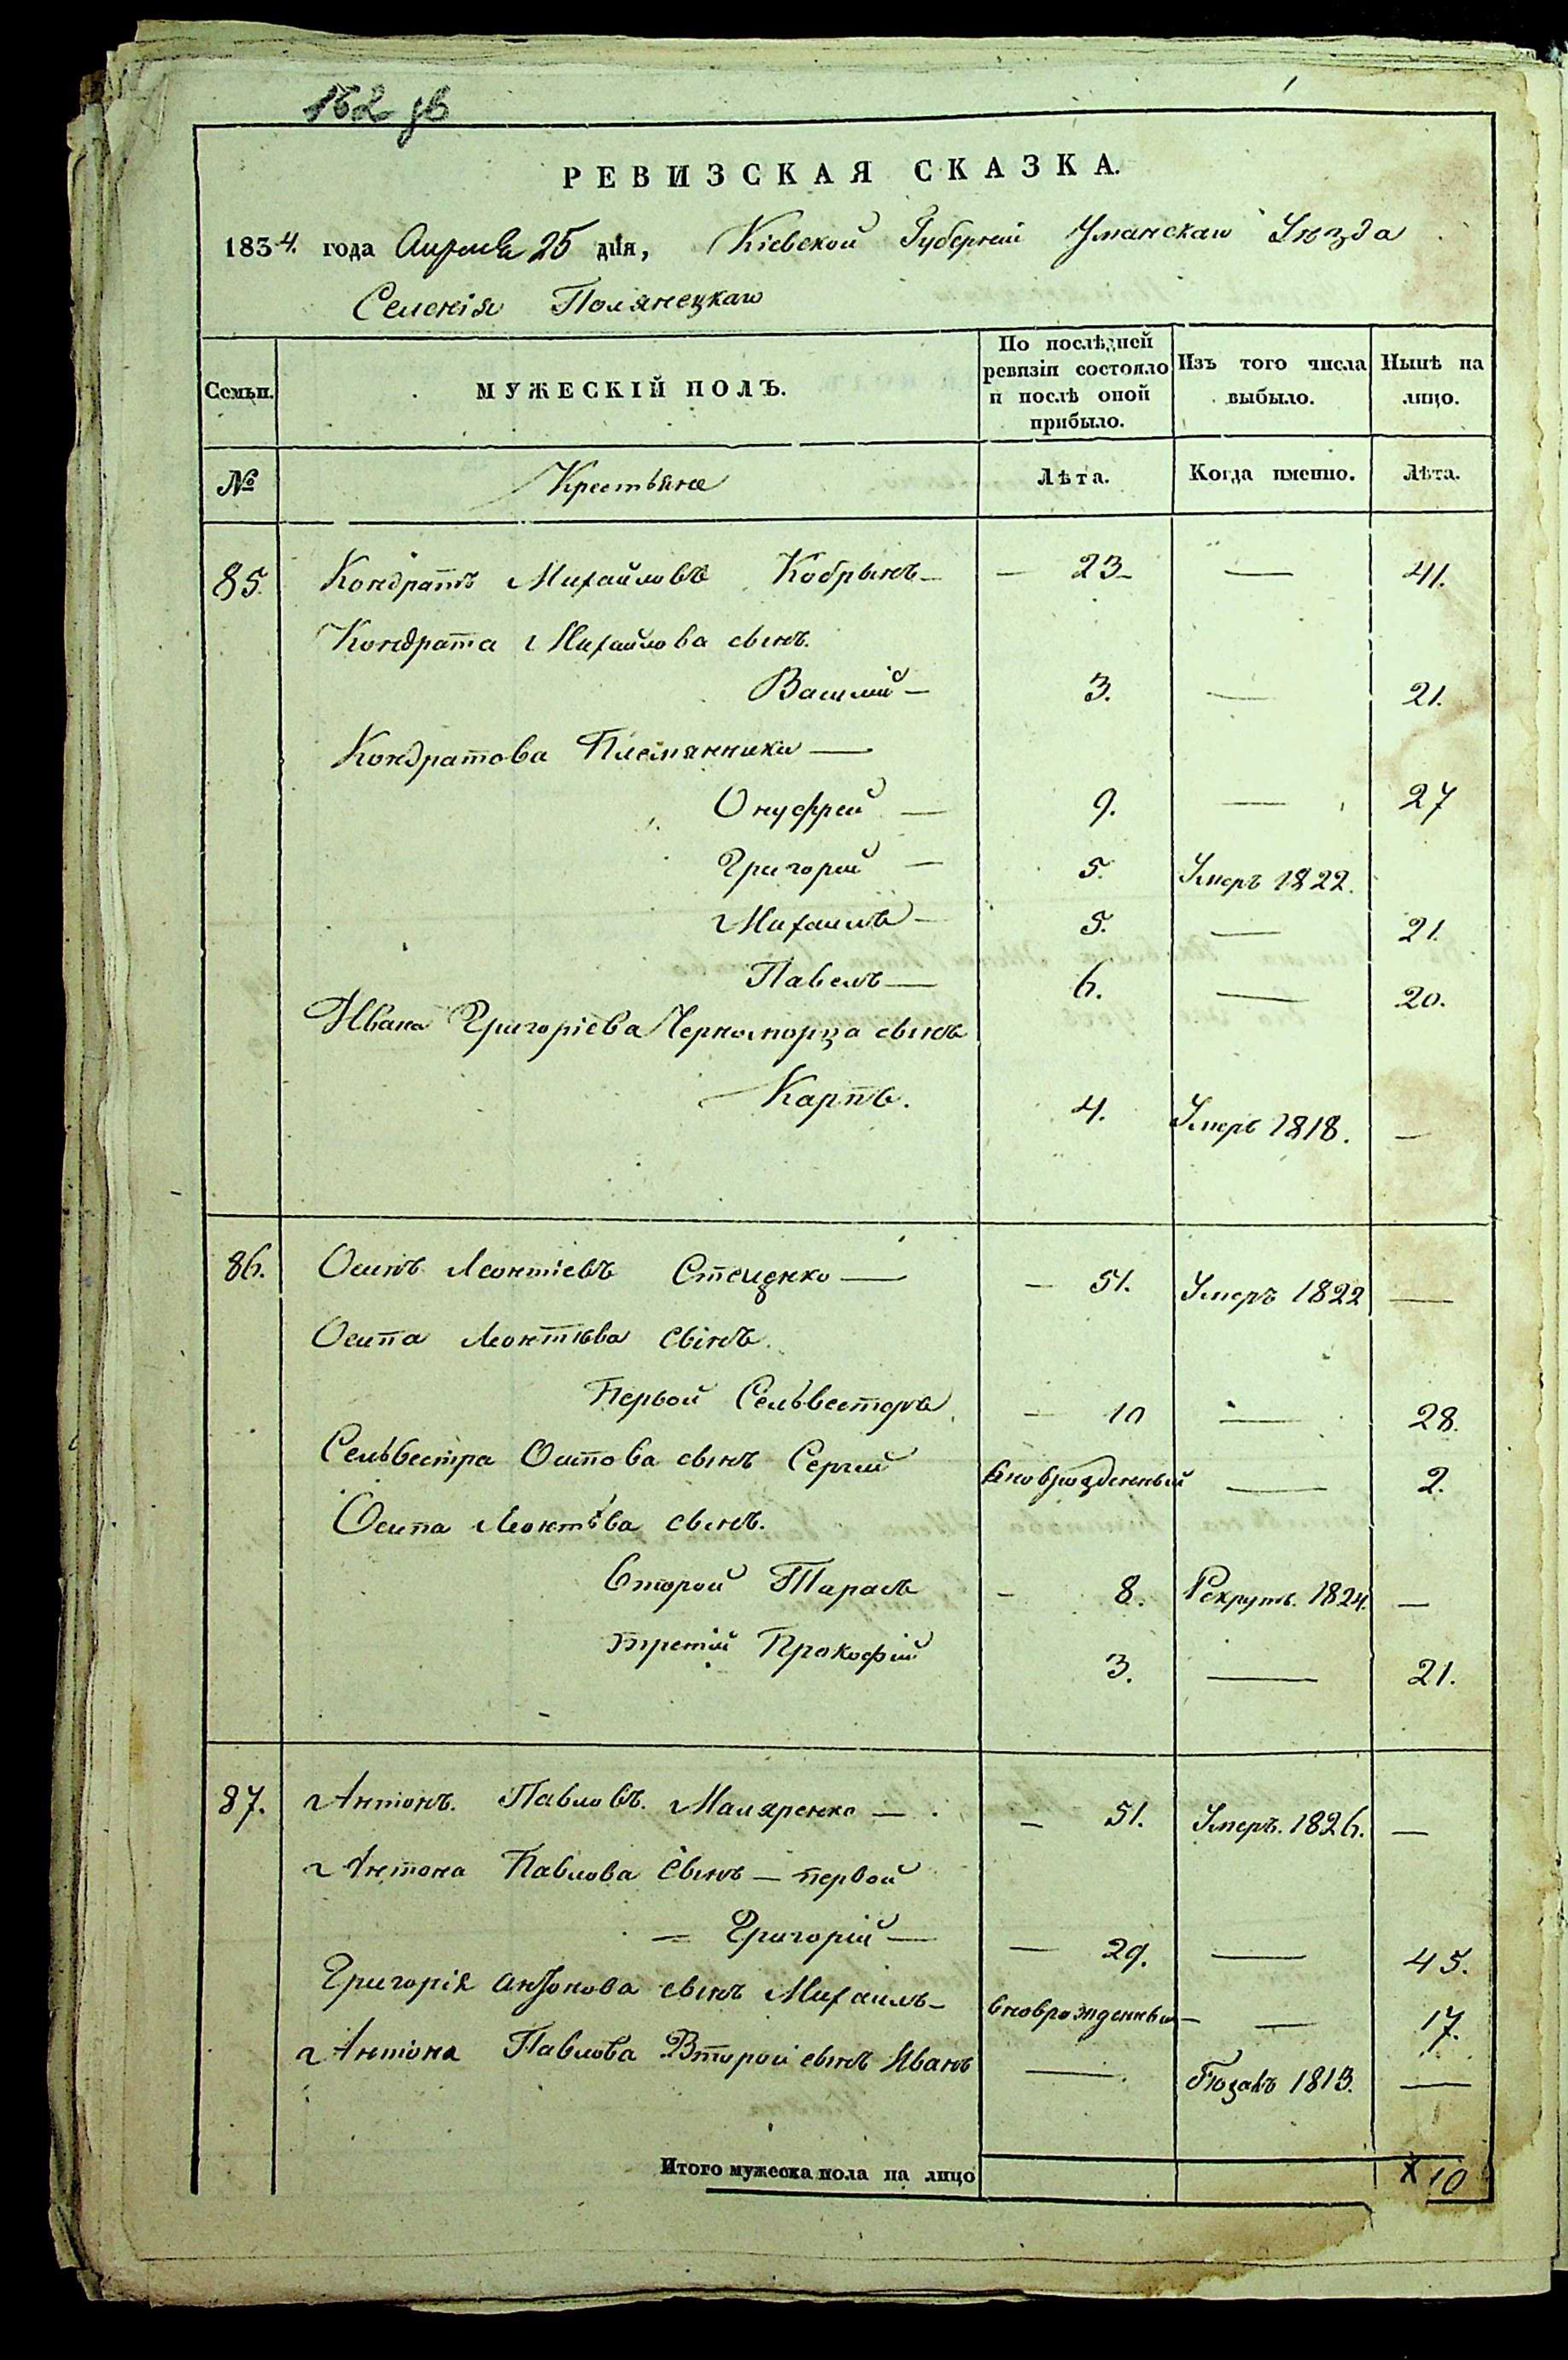 152 
РЕВИЗСКАЯ СКАЗКА.
1834. года Апреля 25 дня, Кіевской Губерніи Уманскаго Уѣзда
Селенія Полянецкаго
Семьи.
МУЖЕСКІЙ ПОЛЪ.
По послѣдней ревизіи состояло и послѣ оной прибыло.
Изъ того числа выбыло.
Нынѣ на лицо.
№ Крестьяне Лѣта. Когда именно. Лѣта.
85. Кондратъ Михайловъ Кобрынъ — — 23 — — 41.
Кондрата Михайлова сынъ.
Василий — 3. — 21.
Кондратова Племянники —
Онуфрей — 9. — 27
Григорей — 5. Умеръ 1822.
Михаилъ — 5. — 21.
Павелъ — 6. — 20.
Ивана Григоріева Черноморца сынъ
Карпъ. 4. Умеръ 1818. —
86. Осипъ Леонтіевъ Стеценко — — 51. Умеръ 1822 —
Осипа Леонтіева сынъ.
Первой Сельвестръ — 10 — 28.
Сельвестра Осипова сынъ Сергий вновьрожденный — 2.
Осипа Леонтіва сынъ.
Второй Тарасъ — 8. Рекрутъ. 1824. —
третій Прокофій 3. — 21.
87. Антонъ. Павловъ. Маляренко — — 51. Умеръ. 1826. —
Антона Павлова сынъ — первой
= Григорій — — 29. — 45.
Григорія антонова сынъ Михаилъ — вноврожденный — — 17.
Антона Павлова Второй сынъ Иванъ — 1813. —
Итого мужеска пола на лицо x 10